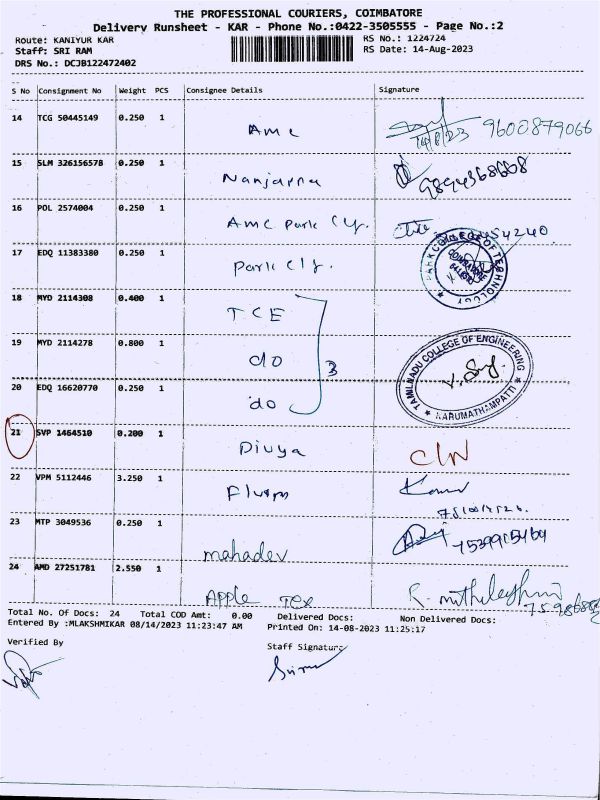 THE PROFESSIONAL COURIERS, COIMBATORE
Delivery Runsheet - KAR - Phone No.:0422-3505555 - Page No.:2
Route: KANIYUR KAR
RS No.: 1224724
Staff: SRI RAM
RS Date: 14-Aug-2023
DRS No.: DCJB122472402
S No Consignment No Weight PCS Consignee Details Signature
14 TCG 50445149 0.250 1 AMC 14/8/23 9600879066
15 SLM 326156578 0.250 1 Nanjappa 9894368668
16 POL 2574004 0.250 1 AMC Park Clg.
17 EDQ 11383380 0.250 1 Park Clg. PARK COLLEGE OF TECHNOLOGY COIMBATORE
18 MYD 2114308 0.400 1 TCE
19 MYD 2114278 0.800 1 do 3 TAMILNADU COLLEGE OF ENGINEERING KARUMATHAMPATTI
20 EDQ 16620770 0.250 1 do
21 SVP 1464510 0.200 1 Divya CIN
22 VPM 5112446 3.250 1
23 MTP 3049536 0.250 1 mahadev
24 AMD 27251781 2.550 1 Apple Tex
Total No. Of Docs: 24 Total COD Amt: 0.00 Delivered Docs: Non Delivered Docs:
Entered By :MLAKSHMIKAR 08/14/2023 11:23:47 AM Printed On: 14-08-2023 11:25:17
Verified By
Staff Signature